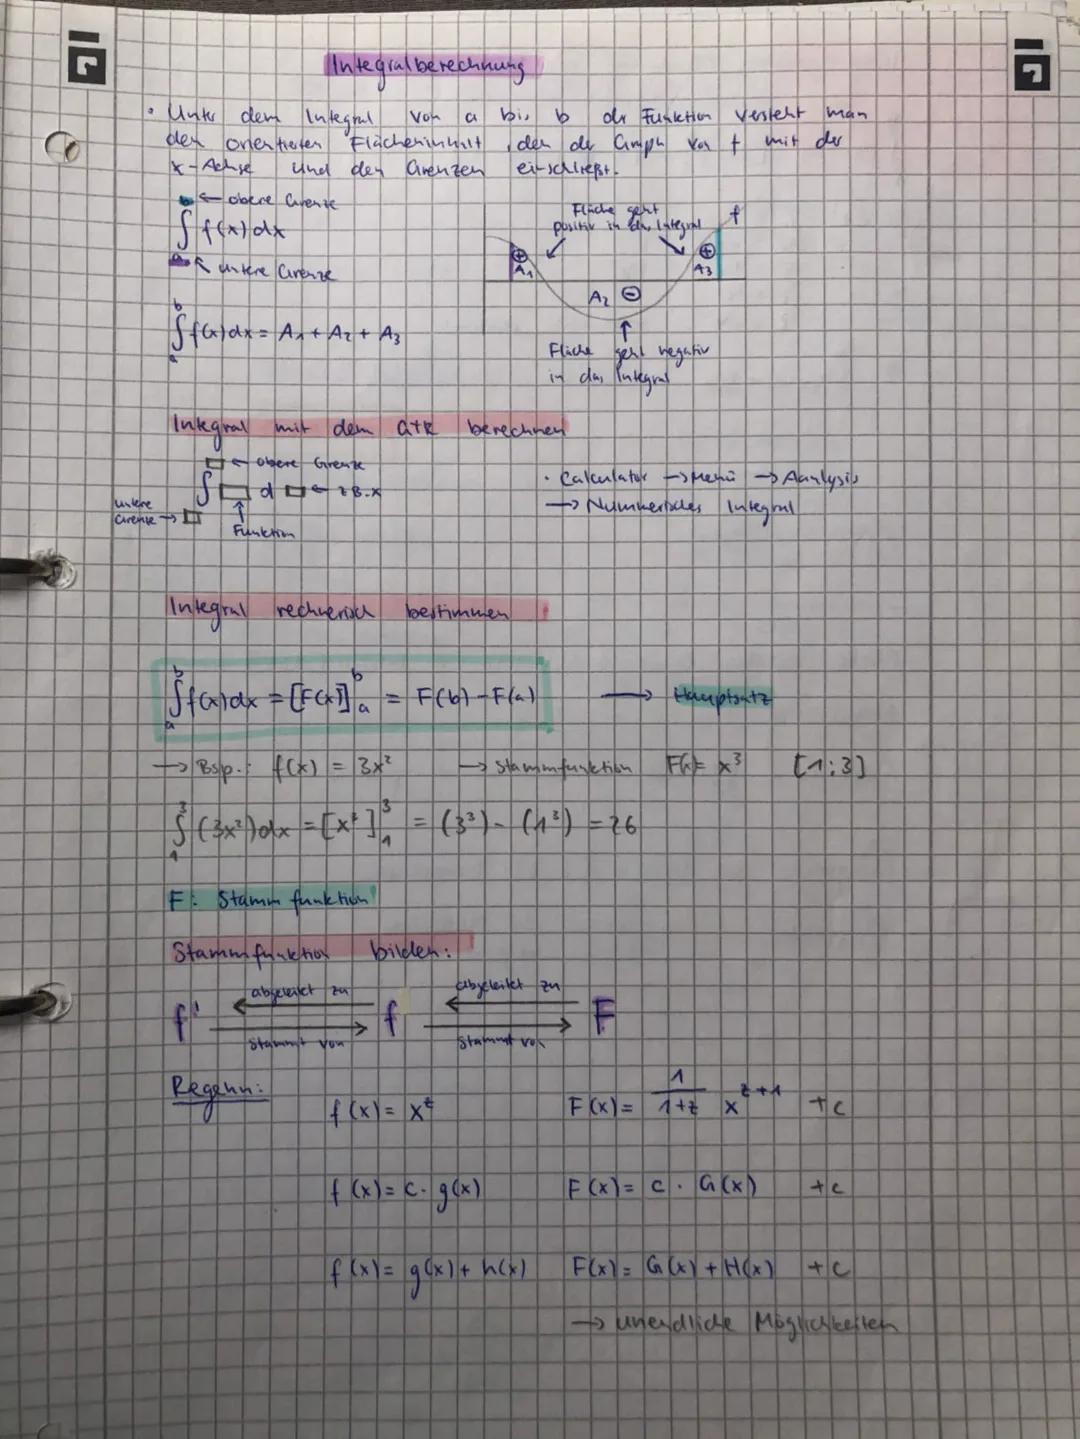 Integralberechnung
• Unter dem Integral von a bis b der Funktion versteht man
den orientierten Flächeninhalt, den der Graph von f mit der
x-Achse und den Grenzen einschließt.
b ← obere Grenze
∫ f(x)dx
a ← untere Grenze
Fläche geht
positiv in das Integral
f
⊕ A₁
⊕ A₃
A₂ ⊖
Fläche geht negativ
in das Integral
b
∫ f(x)dx = A₁ + A₂ + A₃
a
Integral mit dem GTR berechnen
← obere Grenze
∫ □ d □ ← z.B. x
untere
Grenze →
↑
Funktion
• Calculator → Menü → Aanlysis
→ Nummerisches Integral
Integral rechnerisch bestimmen
∫ₐᵇ f(x)dx = [F(x)]ₐᵇ = F(b) - F(a) → Hauptsatz
→ Bsp.: f(x) = 3x² → Stammfunktion F(x)= x³ [1;3]
∫₁³ (3x²)dx = [x³]₁³ = (3³) - (1³) = 26
F: Stammfunktion
Stammfunktion bilden:
abgeleitet zu abgeleitet zu
f' f F
Stammt von Stammt von
Regeln:
f(x) = x^z F(x) = 1/(1+z) x^(z+1) + c
f(x) = c · g(x) F(x) = c · G(x) + c
f(x) = g(x) + h(x) F(x) = G(x) + H(x) + c
→ unendliche Möglichkeiten